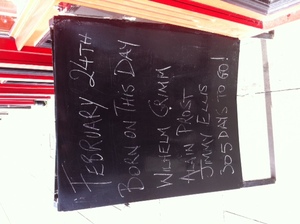 " FEBRUARY 24TH
BORN ON THIS DAY
WILHELM GRIMM
ALAIN PROST
JIMMY ELLIS
305 DAYS TO GO!